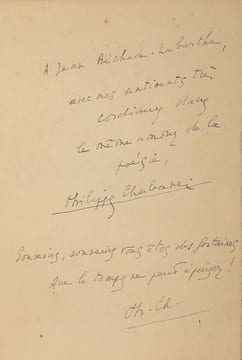 A Jean Béchade-Labarthe,
avec mes sentiments très
cordiaux dans
le même amour de la
poésie,
Philippe Chabaneix
Souvenirs, souvenirs vous êtes des fontaines
Que le temps ne peut épuiser !
Ph. Ch.